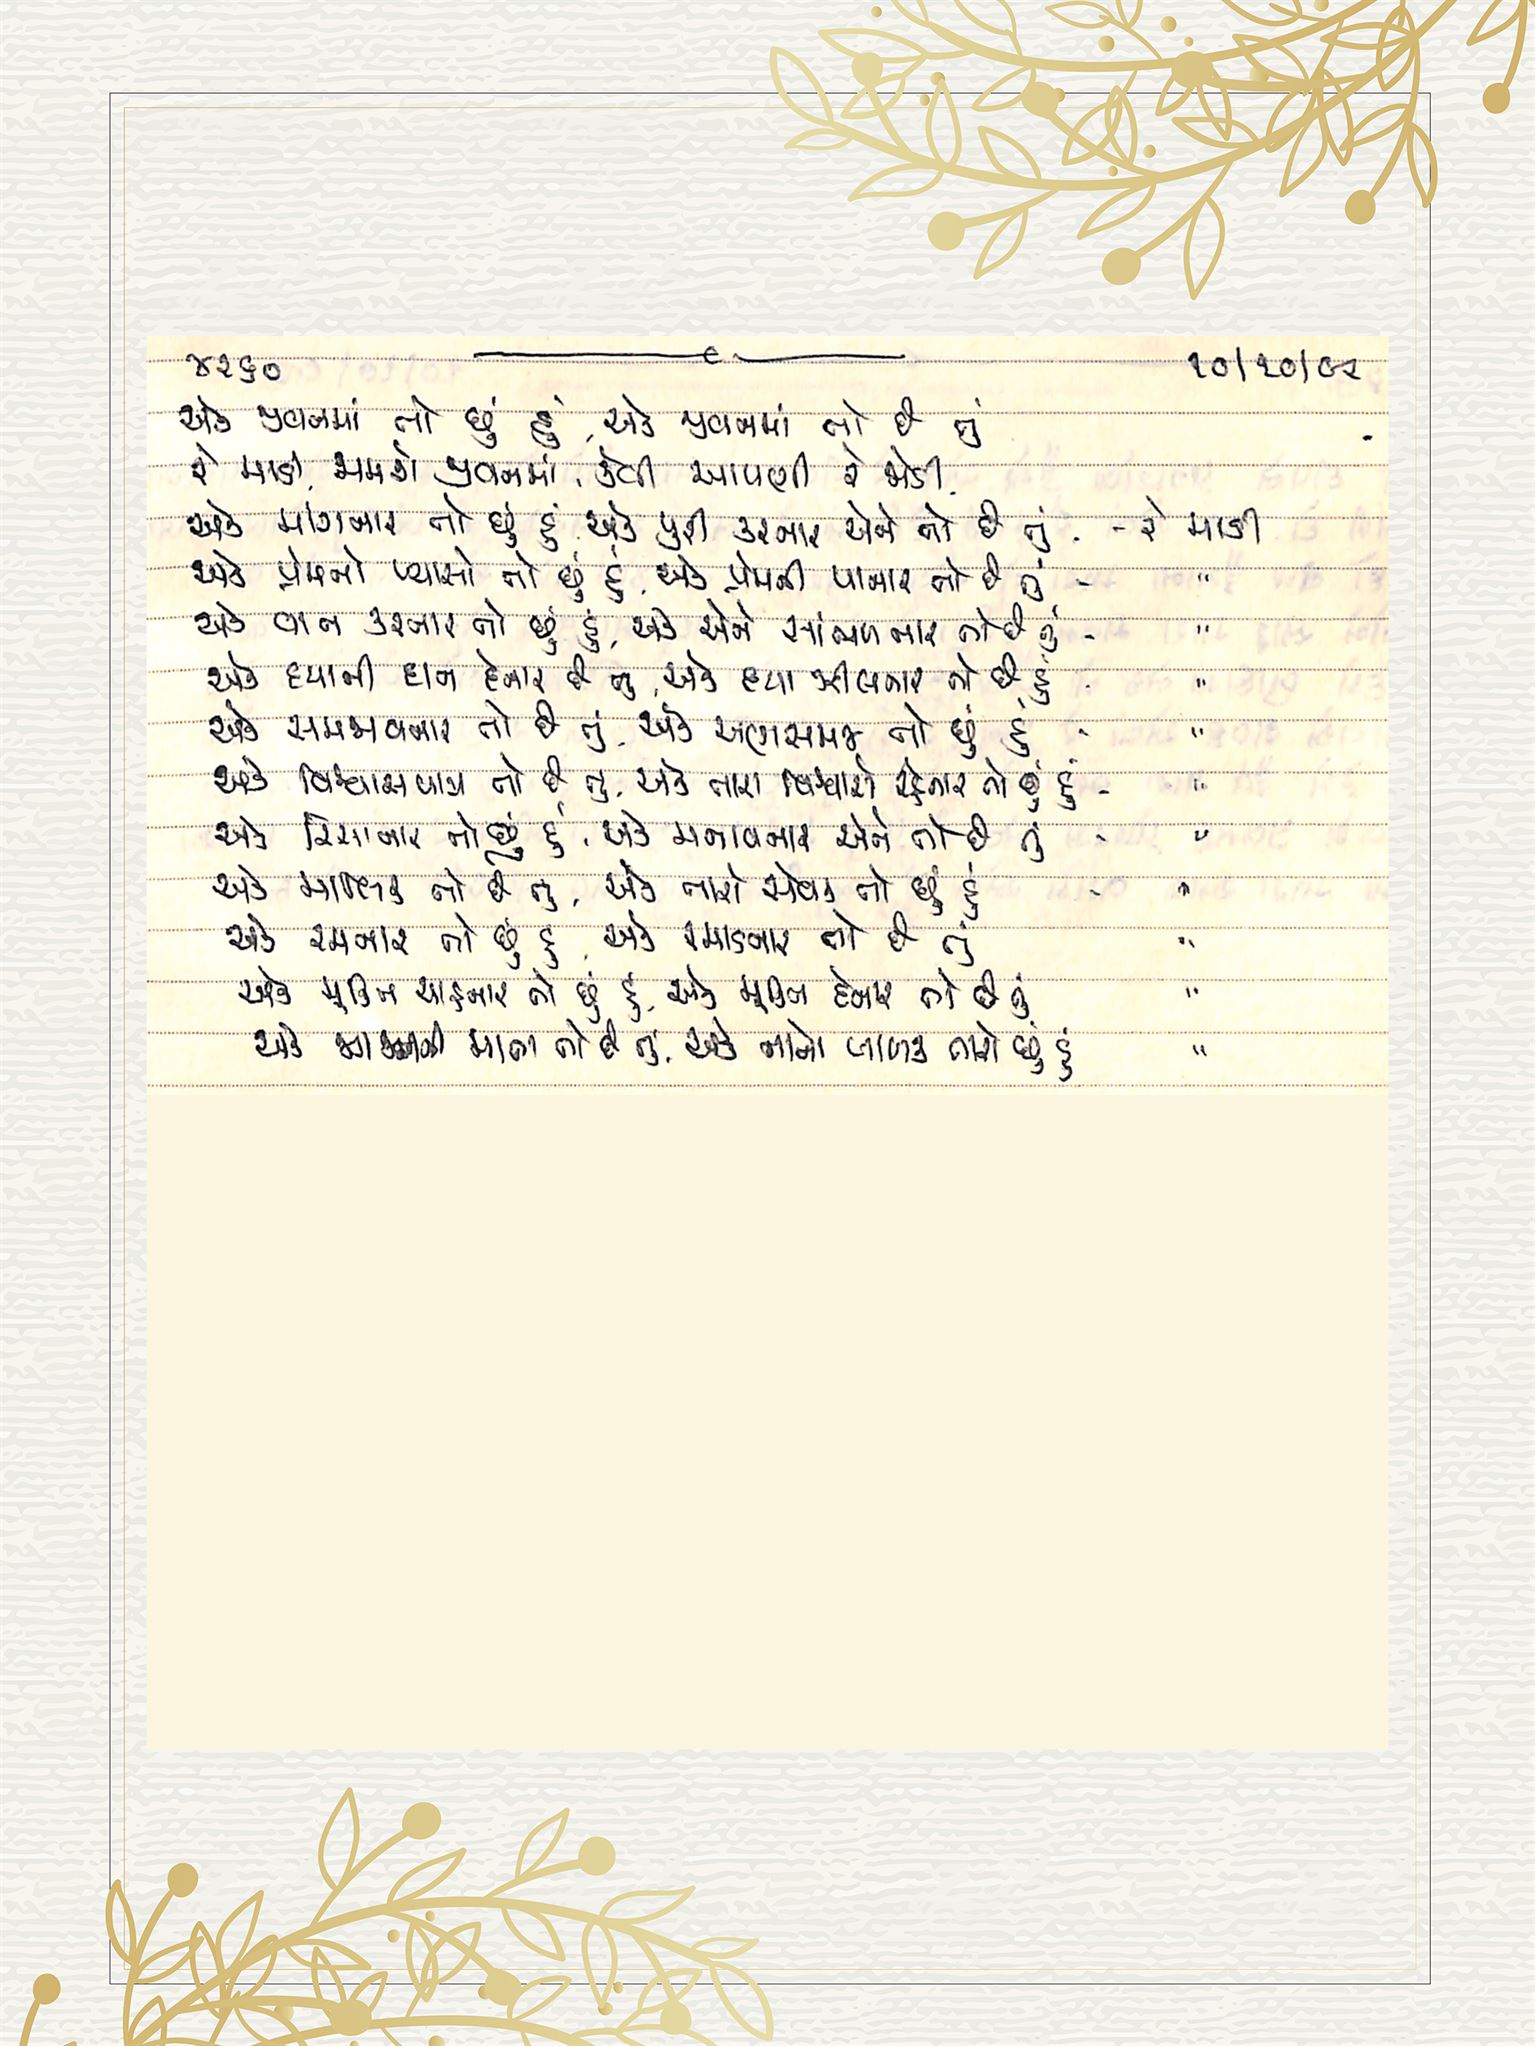 ૪૨૬૦ ૧૦/૧૦/૯૨
એક જીવનમાં તો છું હું, એક જીવનમાં તો છે તું
રે માડી, જીવનમાં, કેવી આપણી રે જોડી.
એક માંગનાર તો છું હું, એક પુરી કરનાર એને તો છે તું. - રે માડી
એક પ્રેમનો પ્યાસો તો છું હું, એક પ્રેમની પાનાર તો છે તું - "
એક વાત કરનાર તો છું હું, એક એને સાંભળનાર તો છે તું - "
એક દયાની દાન દેનાર છે તું, એક દયા ઝીલનાર તો છે હું - "
એક સમજાવનાર તો છે તું, એક અણસમજ તો છું હું - "
એક વિશ્વાસપાત્ર તો છે તું, એક તારા વિશ્વાસે રહેનાર તો છું હું - "
એક રિસાનાર તો છું હું, એક મનાવનાર એને તો છે તું - "
એક માલિક તો છે તું, એક તારો સેવક તો છું હું - "
એક રમનાર તો છું હું, એક રમાડનાર તો છે તું "
એક મૂક્તિ ચાહનાર તો છું હું, એક મૂક્તિ દેનાર તો છે તું "
એક માતા તો છે તું, એક નાનો બાળક તારો છું હું "